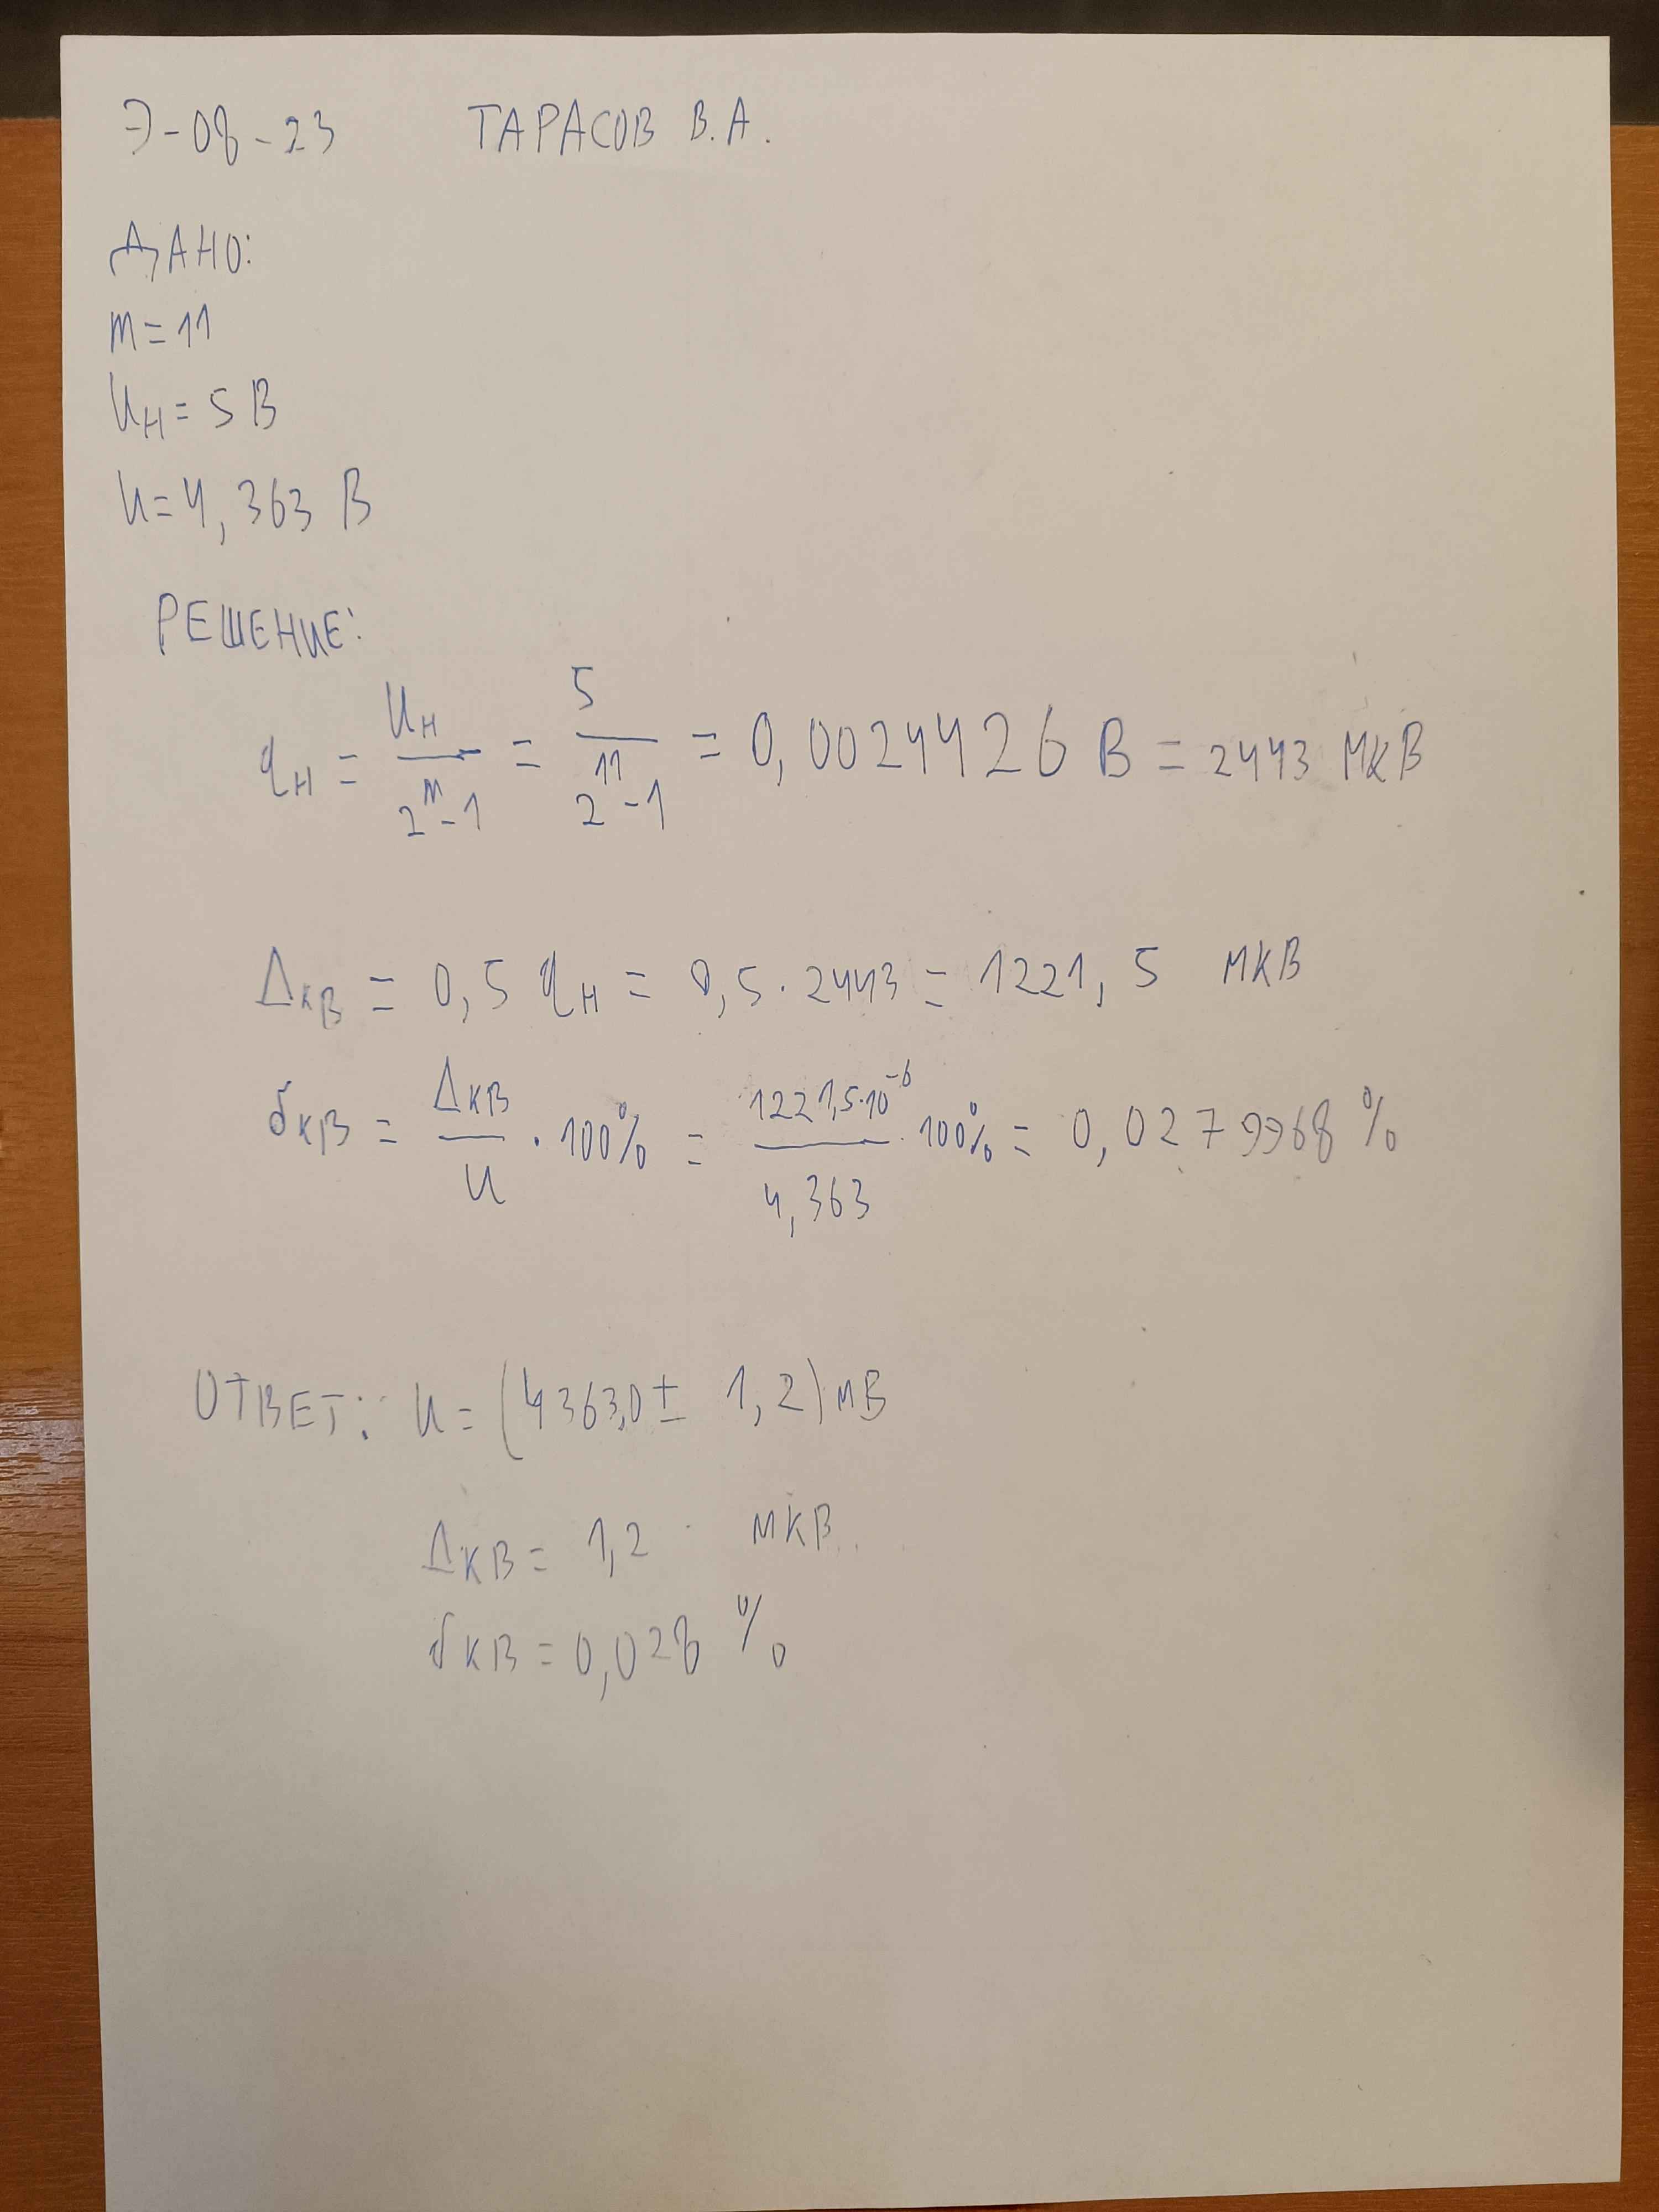 Э-08-23 ТАРАСОВ В.А.
ДАНО:
m=11
Uн=5 В
U=4,363 В
РЕШЕНИЕ:
qн = Uн / (2^m-1) = 5 / (2^11-1) = 0,0024426 В = 2443 мкВ
Δкв = 0,5 qн = 0,5·2443 = 1221,5 мкВ
δкв = Δкв / U · 100% = 1221,5·10^-6 / 4,363 · 100% = 0,0279968 %
ОТВЕТ: U = (4363,0 ± 1,2) мВ
Δкв = 1,2 мкВ
δкв = 0,028 %